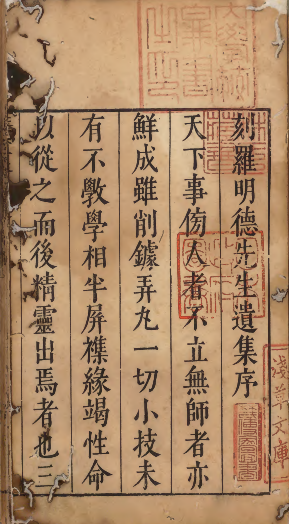 刻羅明德先生遺集序
天下事傍人者不立無師者亦
鮮成雖削鐻弄丸一切小技未
有不斆學相半屏襍緣竭性命
以從之而後精靈出焉者也三
淺草文庫